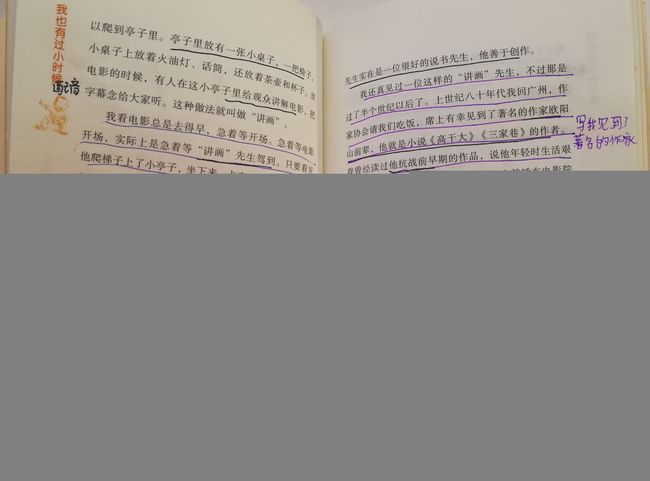 我也有过小时候
配音
以爬到亭子里。亭子里放有一张小桌子，一把椅子，
小桌子上放着火油灯、话筒，还放着茶壶和杯子。放
电影的时候，有人在这小亭子里给观众讲解电影、把
字幕念给大家听。这种做法就叫做“讲画”。
我看电影总是去得早，急着等开场。急着等电影
开场，实际上是急着等“讲画”先生驾到。只要看见
他爬梯子上了小亭子，坐下来，点
先生实在是一位很好的说书先生，他善于创作。
我还真见过一位这样的“讲画”先生，不过那是
过了半个世纪以后了。上世纪八十年代我回广州，作
家协会请我们吃饭，席上有幸见到了著名的作家欧阳
山前辈，他就是小说《高干大》《三家巷》的作者。
我曾经读过他抗战前早期的作品，说他年轻时生活艰
在电影院
写我见到了
著名的作家